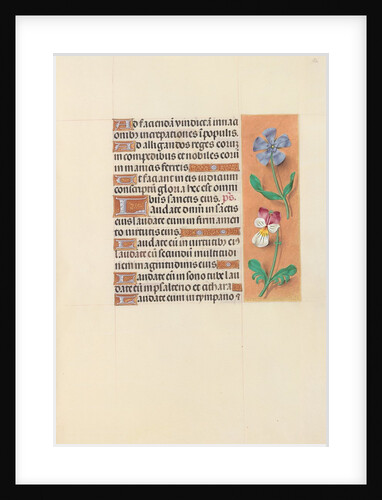 Ad faciendā vindictā in naci
onib⁹ increpationes ī populis.
Ad alligandos reges eoruȝ
in compedibus et nobiles eorū
in manicis ferreis
Ut faciant in eis iudicium
conscriptū gloria hec est omni
bus sanctis eius. ps.
Laudate dominū in sāctis
eius laudate eum in firmamen
to virtutis eius
Laudate eum in virtutib⁹ ei⁹
laudate eū secundum multitudi
nem magnitudinis eius
Laudate eum in sono tube lau
date eū in psalterio et cithara
Laudate eum in tympano ⁊